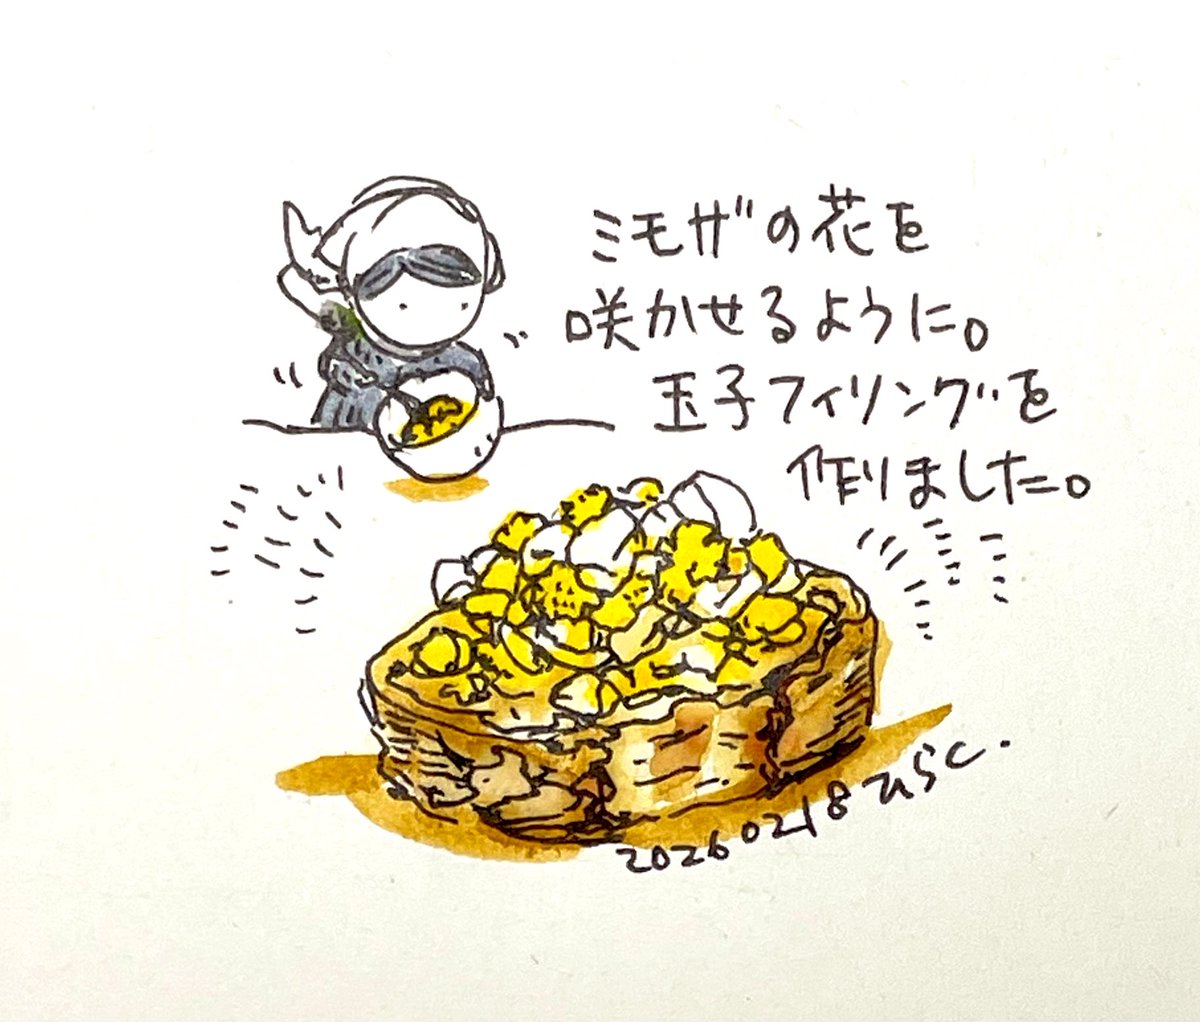 ミモザの花を
咲かせるように。
玉子フィリングを
作りました。
20260218